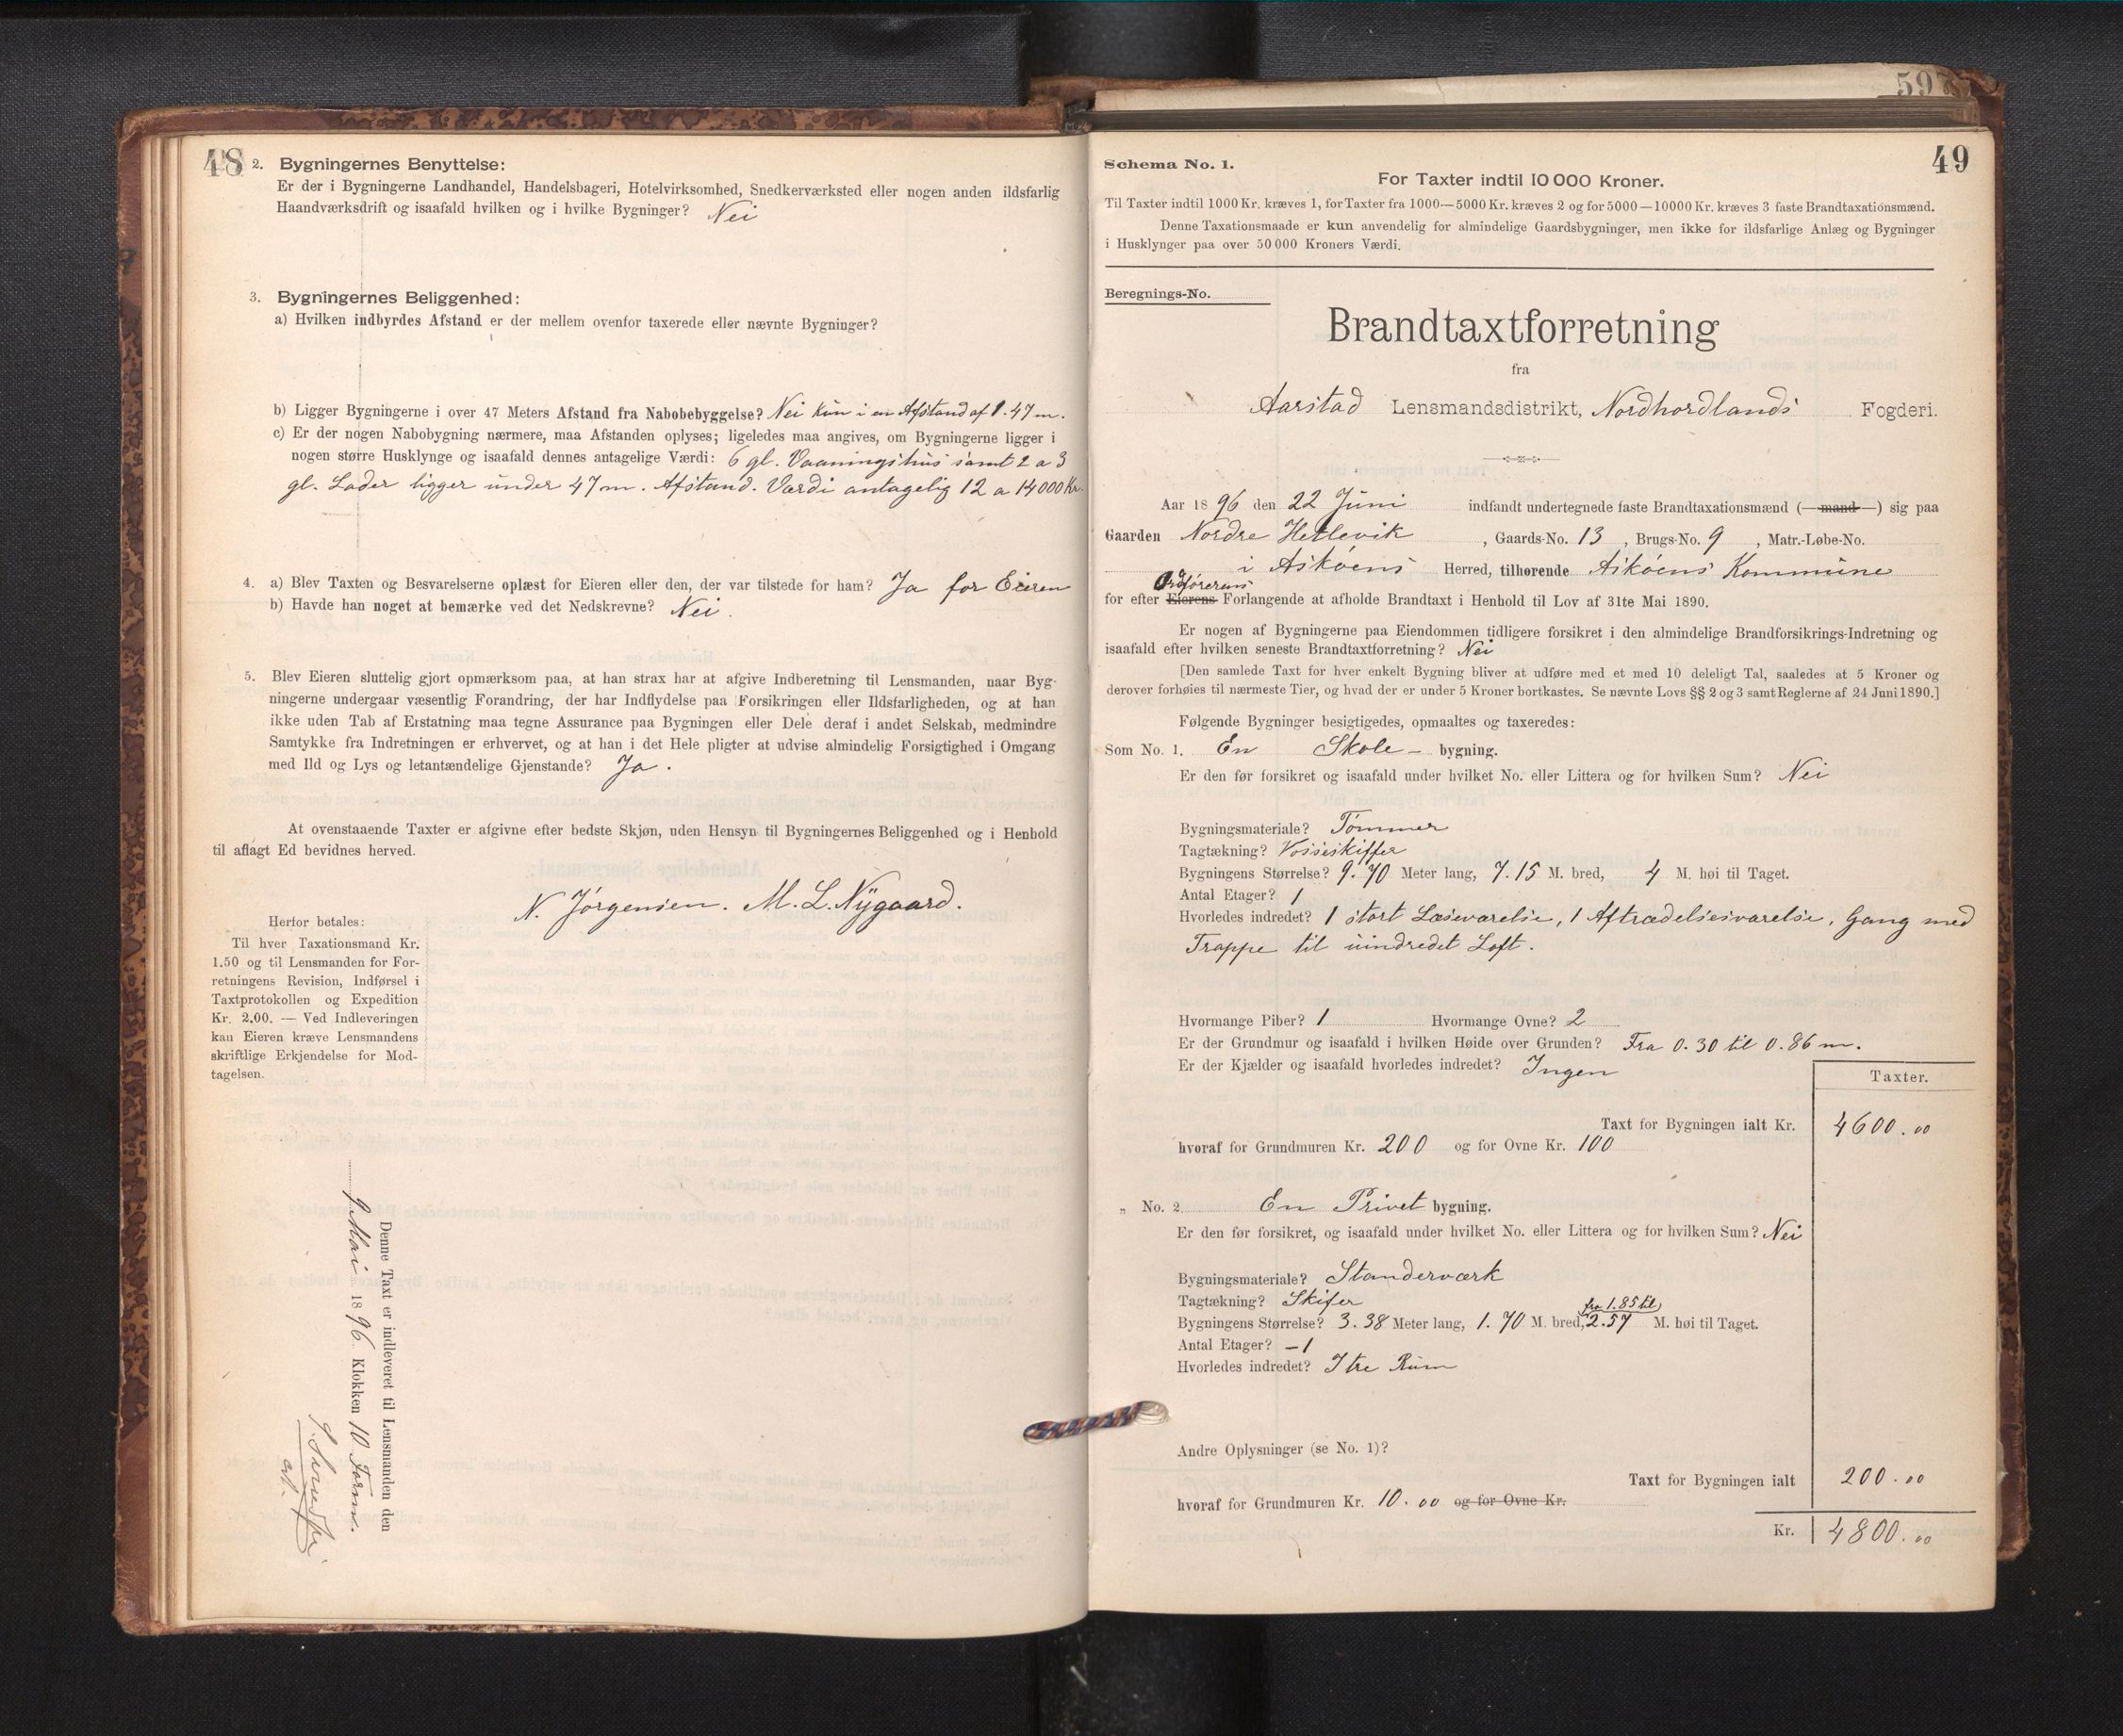 48
2. Bygningernes Benyttelse:
Er der i Bygningerne Landhandel, Handelsbageri, Hotelvirksomhed, Snedkerværksted eller nogen anden ildsfarlig
Haandværksdrift og isaafald hvilken og i hvilke Bygninger? Nei
3. Bygningernes Beliggenhed:
a) Hvilken indbyrdes Afstand er der mellem ovenfor taxerede eller nævnte Bygninger?
b) Ligger Bygningerne i over 47 Meters Afstand fra Nabobebyggelse? Nei kun i en Afstand af 1.47 m.
c) Er der nogen Nabobygning nærmere, maa Afstanden oplyses; ligeledes maa angives, om Bygningerne ligger i
nogen større Husklynge og isaafald dennes antagelige Værdi: 6 gl. Vaaningshus samt 2 a 3
gl. Lader ligger under 47 m. Afstand. Værdi antagelig 12 a 14000 Kr.
4. a) Blev Taxten og Besvarelserne oplæst for Eieren eller den, der var tilstede for ham? Ja for Eieren
b) Havde han noget at bemærke ved det Nedskrevne? Nei.
5. Blev Eieren sluttelig gjort opmærksom paa, at han strax har at afgive Indberetning til Lensmanden, naar Byg-
ningerne undergaar væsentlig Forandring, der har Indflydelse paa Forsikringen eller Ildsfarligheden, og at han
ikke uden Tab af Erstatning maa tegne Assurance paa Bygningen eller Dele deraf i andet Selskab, medmindre
Samtykke fra Indretningen er erhvervet, og at han i det Hele pligter at udvise almindelig Forsigtighed i Omgang
med Ild og Lys og letantændelige Gjenstande? Ja.
At ovenstaaende Taxter er afgivne efter bedste Skjøn, uden Hensyn til Bygningernes Beliggenhed og i Henhold
til aflagt Ed bevidnes herved.
N. Jørgensen. M. L. Nygaard.
Herfor betales:
Til hver Taxationsmand Kr.
1.50 og til Lensmanden for For-
retningens Revision, Indførsel i
Taxtprotokollen og Expedition
Kr. 2.00. — Ved Indleveringen
kan Eieren kræve Lensmandens
skriftlige Erkjendelse for Mod-
tagelsen.
Denne Taxt er indleveret til Lensmanden den
9 Mai 1896 Klokken 10 Form.
597
49
Schema No. 1.
For Taxter indtil 10 000 Kroner.
Til Taxter indtil 1000 Kr. kræves 1, for Taxter fra 1000—5000 Kr. kræves 2 og for 5000—10000 Kr. kræves 3 faste Brandtaxationsmænd.
Denne Taxationsmaade er kun anvendelig for almindelige Gaardsbygninger, men ikke for ildsfarlige Anlæg og Bygninger
i Husklynger paa over 50 000 Kroners Værdi.
Beregnings-No.
Brandtaxtforretning
fra
Aarstad Lensmandsdistrikt, Nordhordlands Fogderi.
Aar 1896 den 22 Juni indfandt undertegnede faste Brandtaxationsmænd (—mand—) sig paa
Gaarden Nordre Hetlevik, Gaards-No. 13, Brugs-No. 9, Matr.-Løbe-No.
i Askøens Herred, tilhørende Askøens Kommune
Ordførerens
for efter Eierens Forlangende at afholde Brandtaxt i Henhold til Lov af 31te Mai 1890.
Er nogen af Bygningerne paa Eiendommen tidligere forsikret i den almindelige Brandforsikrings-Indretning og
isaafald efter hvilken seneste Brandtaxtforretning? Nei
[Den samlede Taxt for hver enkelt Bygning bliver at udføre med et med 10 deleligt Tal, saaledes at 5 Kroner og
derover forhøies til nærmeste Tier, og hvad der er under 5 Kroner bortkastes. Se nævnte Lovs §§ 2 og 3 samt Reglerne af 24 Juni 1890.]
Følgende Bygninger besigtigedes, opmaaltes og taxeredes:
Som No. 1. En Skole- bygning.
Er den før forsikret og isaafald under hvilket No. eller Littera og for hvilken Sum? Nei
Bygningsmateriale? Tømmer
Tagtækning? Vosseskiffer
Bygningens Størrelse? 9.70 Meter lang, 7.15 M. bred, 4 M. høi til Taget.
Antal Etager? 1
Hvorledes indredet? 1 stort Læseværelse, 1 Aftrædelsesværelse, Gang med
Trappe til uindredet Loft.
Hvormange Piber? 1 Hvormange Ovne? 2
Er der Grundmur og isaafald i hvilken Høide over Grunden? Fra 0.30 til 0.86 m.
Er der Kjælder og isaafald hvorledes indredet? Ingen
Taxter.
Taxt for Bygningen ialt Kr. 4600.00
hvoraf for Grundmuren Kr. 200 og for Ovne Kr. 100
„ No. 2 En Privet bygning.
Er den før forsikret, og isaafald under hvilket No. eller Littera og for hvilken Sum? Nei
Bygningsmateriale? Standerværk
Tagtækning? Skifer
fra 1.85 til
Bygningens Størrelse? 3.38 Meter lang, 1.70 M. bred, 2.57 M. høi til Taget.
Antal Etager? 1
Hvorledes indredet? I tre Rum
Andre Oplysninger (se No. 1)?
Taxt for Bygningen ialt 200.00
hvoraf for Grundmuren Kr. 10.00 og for Ovne Kr.
Kr. 4800.00